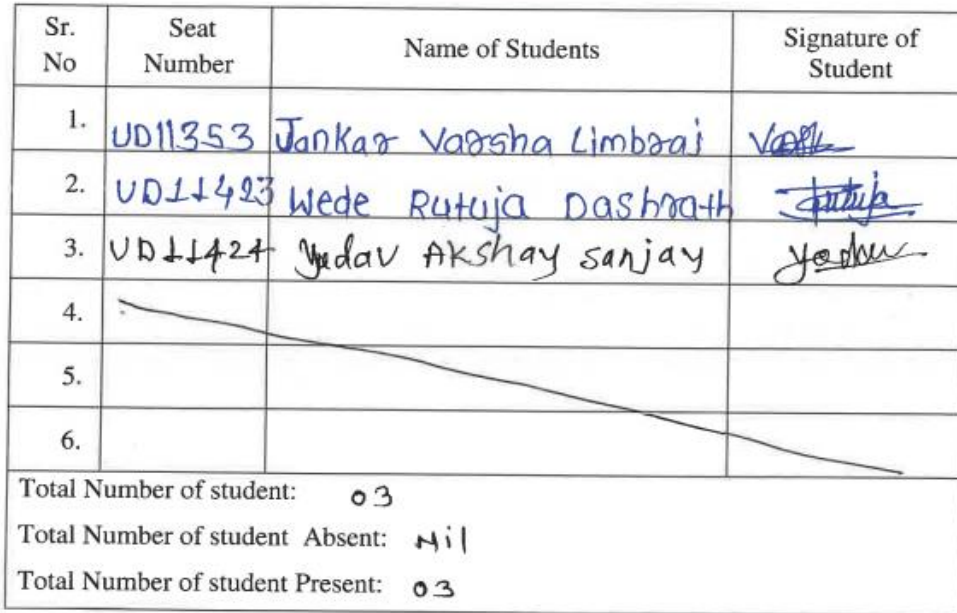 Sr. No Seat Number Name of Students Signature of Student
1. UD11353 Jankar Varsha Limbraj
2. UD11423 Wede Rutuja Dashrath Rutuja
3. UD11424 Yadav Akshay Sanjay Yadav
4.
5.
6.
Total Number of student: 03
Total Number of student Absent: Nil
Total Number of student Present: 03